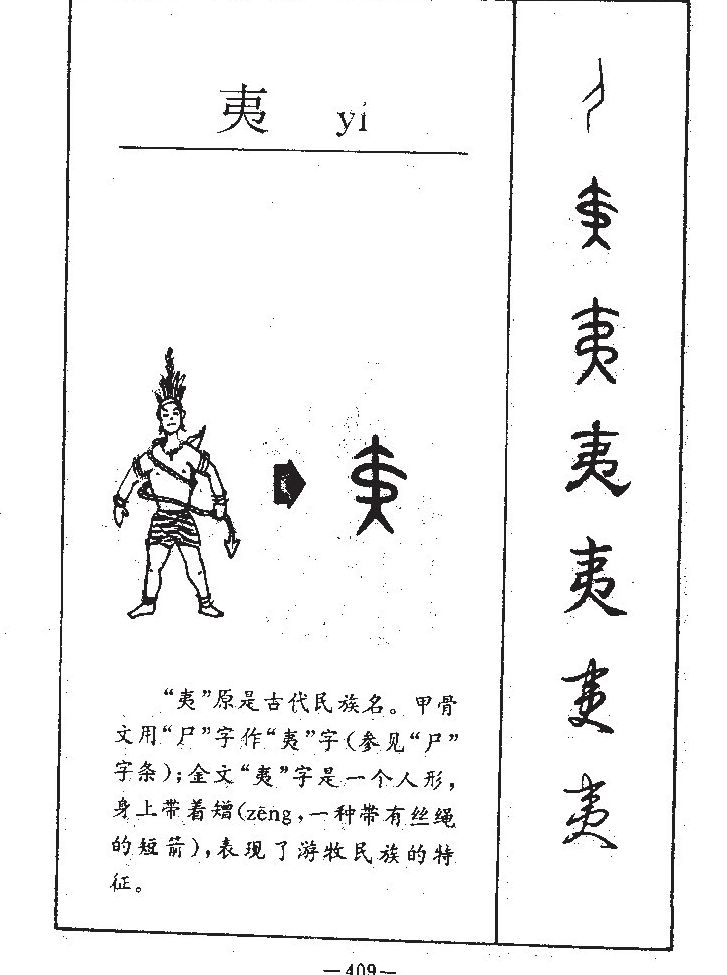 夷 yí
“夷”原是古代民族名。甲骨
文用“尸”字作“夷”字（参见“尸”
字条）；金文“夷”字是一个人形，
身上带着矰（zēng，一种带有丝绳
的短箭），表现了游牧民族的特
征。
夷
夷
夷
夷
夷
夷
—409—